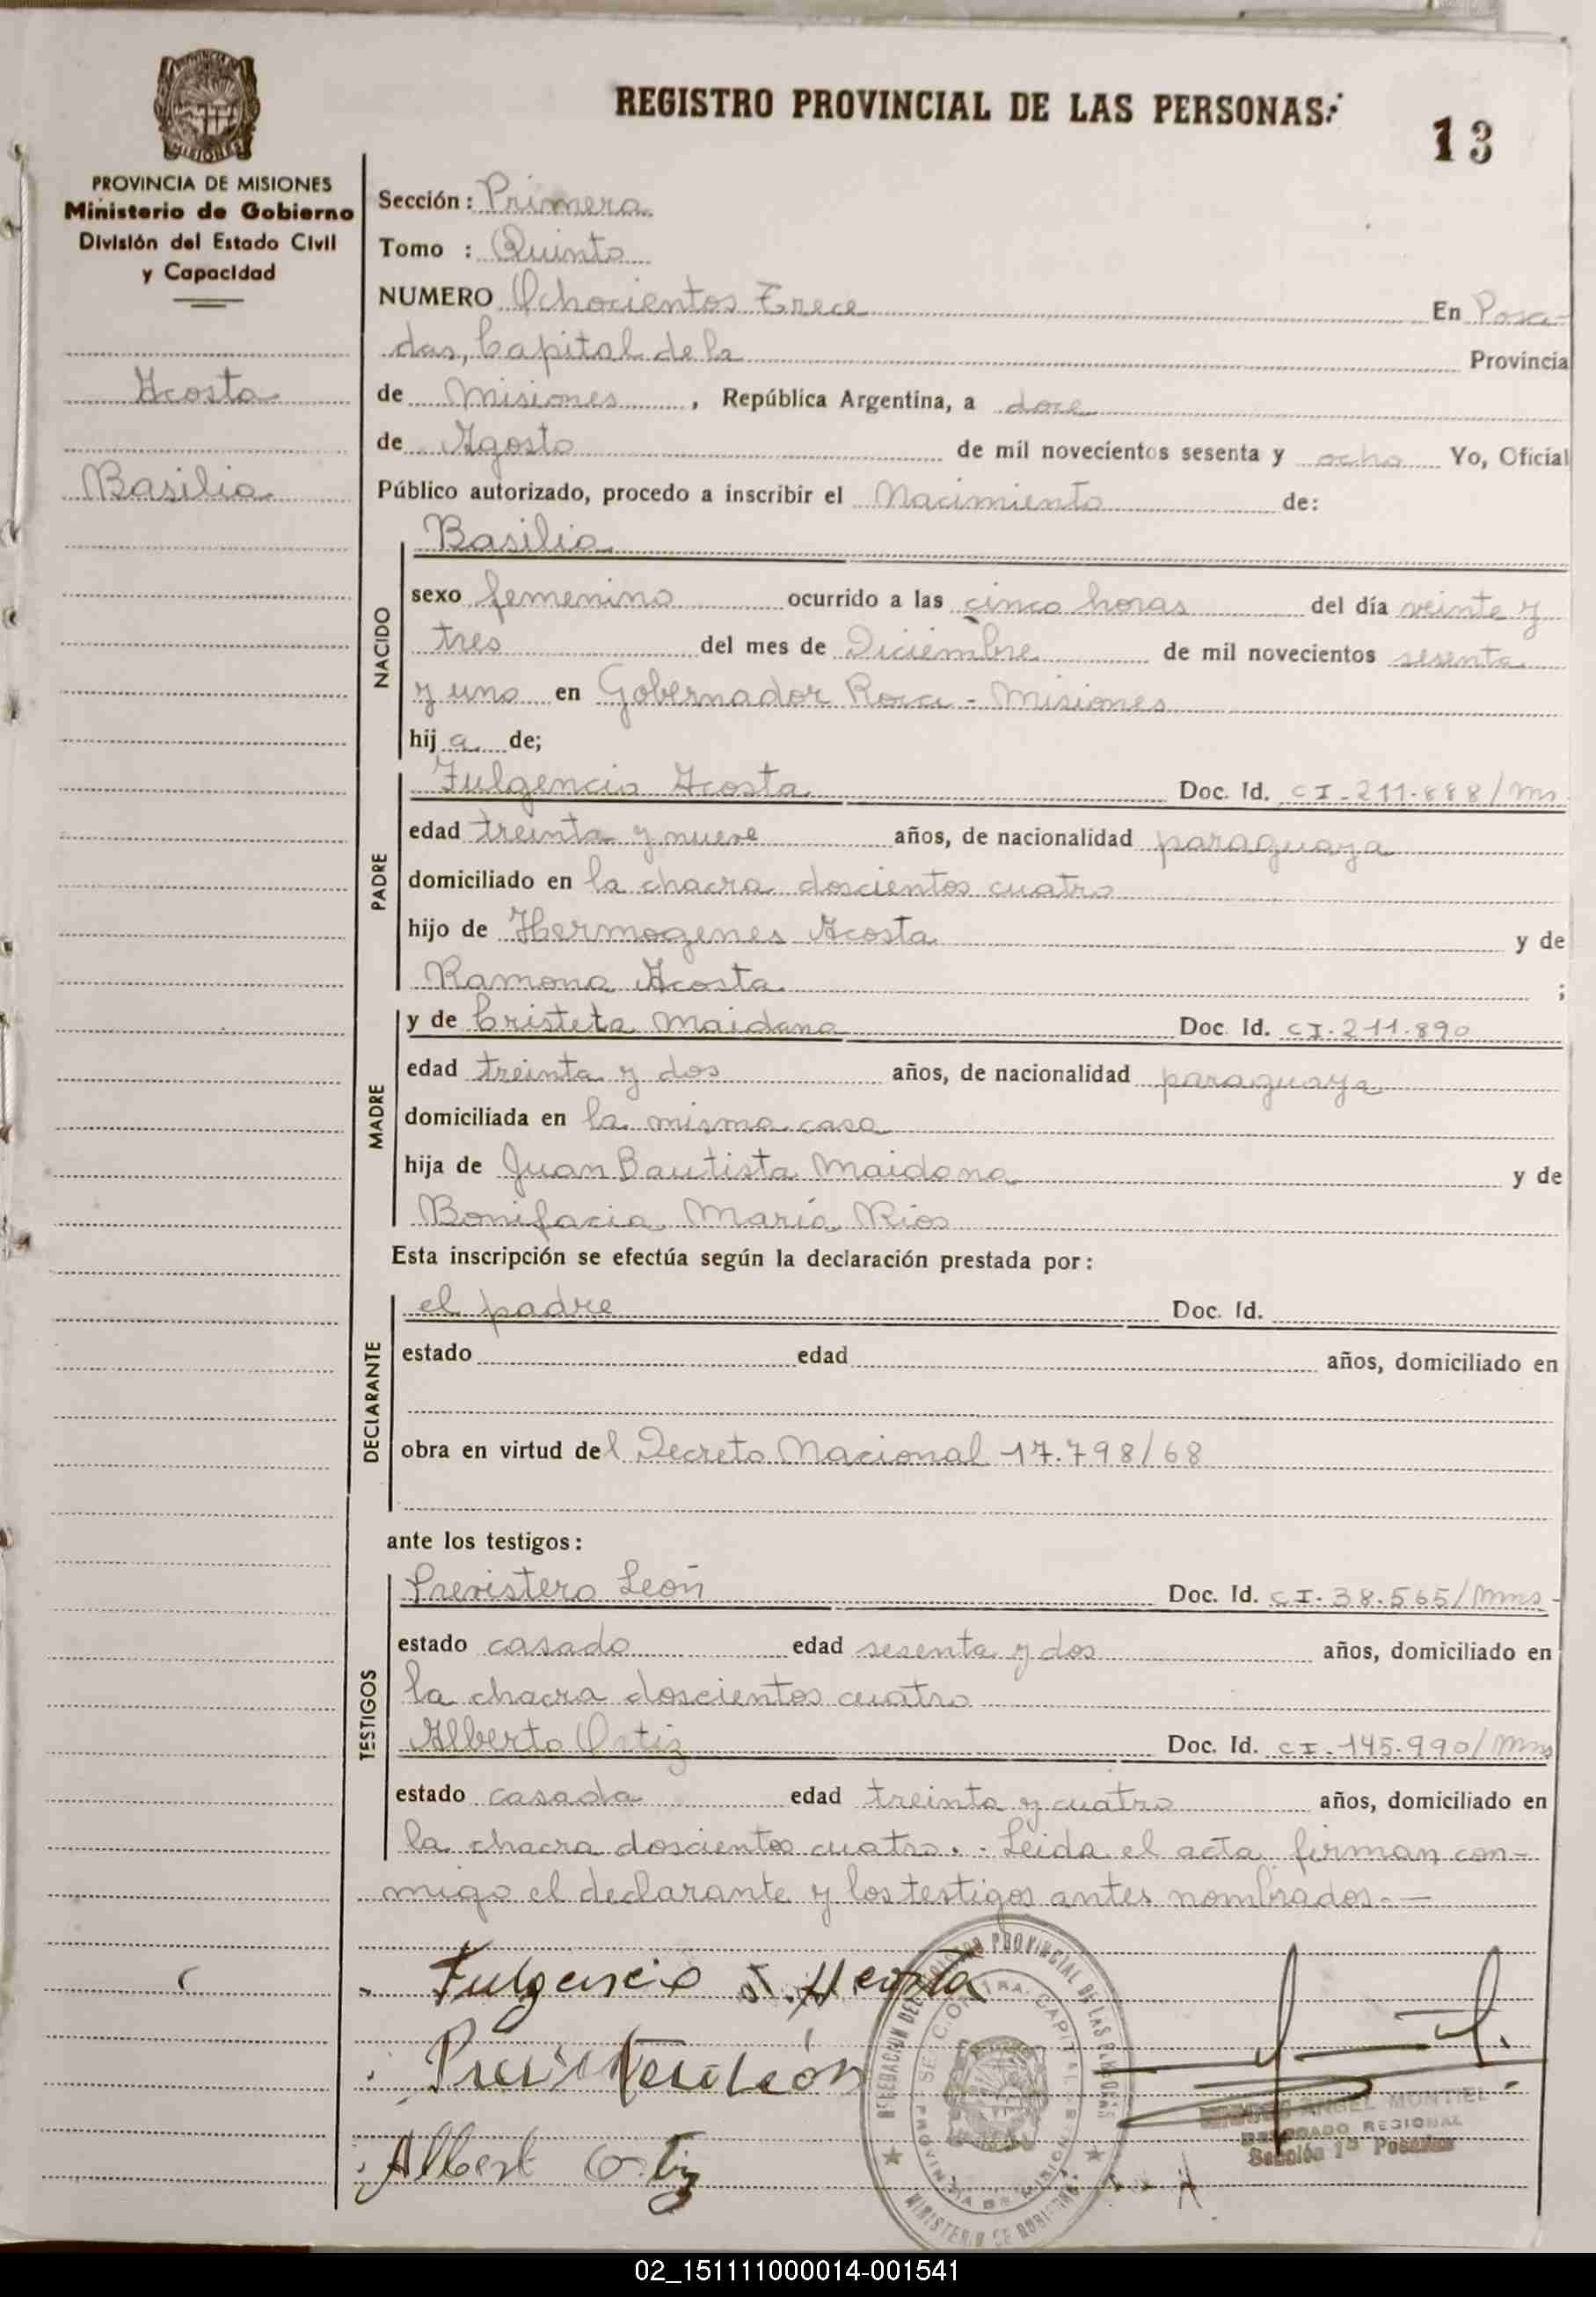 REGISTRO PROVINCIAL DE LAS PERSONAS
13
MISIONES
PROVINCIA DE MISIONES
Ministerio de Gobierno
División del Estado Civil
y Capacidad
Acosta
Basilia
Sección: Primera
Tomo : Quinto
NUMERO Ochocientos Trece En Posa-
das, Capital de la Provincia
de Misiones, República Argentina, a doce
de Agosto de mil novecientos sesenta y ocho Yo, Oficial
Público autorizado, procedo a inscribir el Nacimiento de:
NACIDO
Basilia
sexo femenino ocurrido a las cinco horas del día veinte y
tres del mes de Diciembre de mil novecientos sesenta
y uno en Gobernador Roca - Misiones
hija de;
PADRE
Fulgencio Acosta Doc. Id. CI-211.888/Ms
edad treinta y nueve años, de nacionalidad paraguaya
domiciliado en la chacra doscientos cuatro
hijo de Hermogenes Acosta y de
Ramona Acosta ;
MADRE
y de Cristeta Maidana Doc. Id. CI.211.890
edad treinta y dos años, de nacionalidad paraguaya
domiciliada en la misma casa
hija de Juan Bautista Maidana y de
Bonifacia María Rios
Esta inscripción se efectúa según la declaración prestada por:
DECLARANTE
el padre Doc. Id.
estado edad años, domiciliado en
obra en virtud del Decreto Nacional 17.798/68
ante los testigos:
TESTIGOS
Previstero León Doc. Id. CI.38.565/Mns
estado casado edad sesenta y dos años, domiciliado en
la chacra doscientos cuatro
Alberto Ortiz Doc. Id. CI.145.990/Mns
estado casada edad treinta y cuatro años, domiciliado en
la chacra doscientos cuatro.- Leida el acta firman con-
migo el declarante y los testigos antes nombrados.-
Fulgencio J. Acosta
Previstero León
Albert Ortiz
DELEGACION DEL REGISTRO PROVINCIAL DE LAS PERSONAS
SECCION 1RA. CAPITAL
PROVINCIA DE MISIONES
MINISTERIO DE GOBIERNO
ANGEL MONTIEL
DELEGADO REGIONAL
Sección 1ª Posadas
02_151111000014-001541